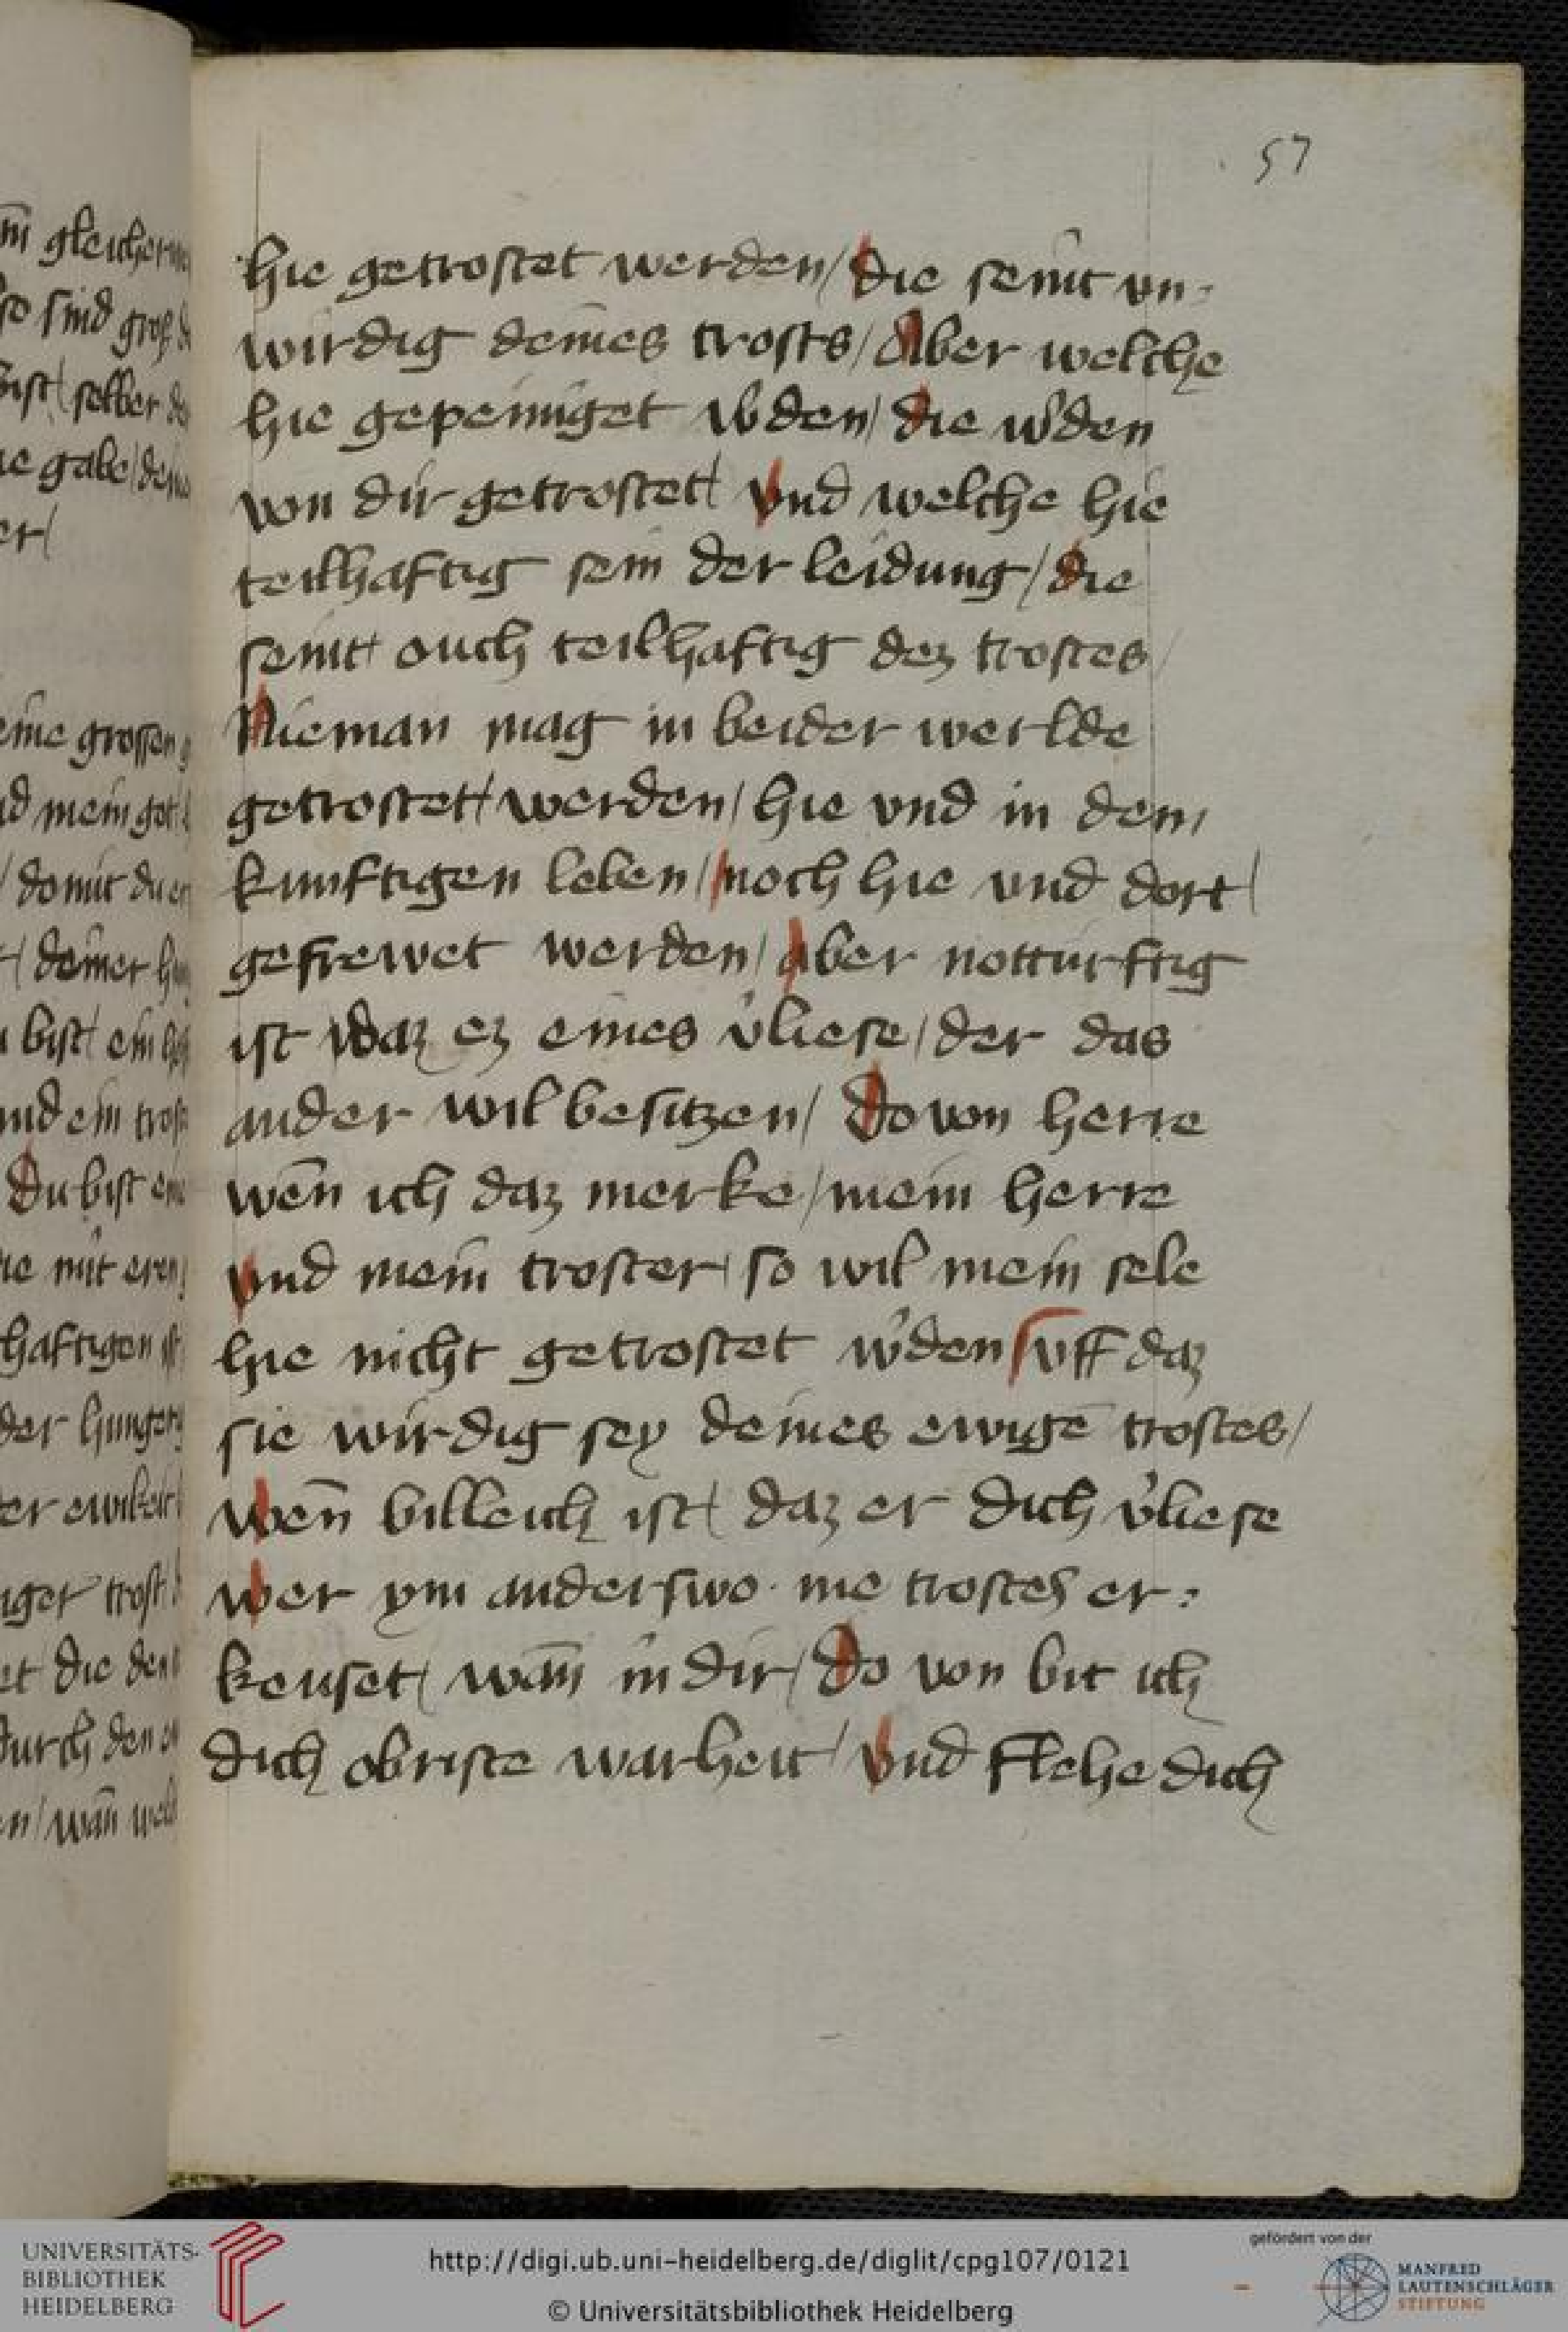 57
hie getrostet werden / die seint vn-
wirdig deines trosts / Aber welche
hie gepeiniget w'den / die w'den
von dir getrostet / vnd welche hie
teilhaftig sein der leidung / die
seint ouch teilhaftig dez trostes /
Nieman mag in beider werlde
getrostet werden / hie vnd in dem
kunftigen leben / noch hie vnd dort /
gefrewet werden / aber notturftig
ist daz ez eines v'liese / der das
ander wil besitzen / Do von herre
wen̄ ich daz merke / mein herre
vnd mein troster / so wil mein sele
hie nicht getrostet w'den / vff daz
sie wirdig sey deines ewigē trostes /
wen̄ billeich ist / daz er dich v'liese
wer ym anderswo me trostes er-
keuset / wan̄ in dir / Do von bit ich
dich obriste warheit / vnd flehe dich
UNIVERSITÄTS-
BIBLIOTHEK
HEIDELBERG
http://digi.ub.uni-heidelberg.de/diglit/cpg107/0121
© Universitätsbibliothek Heidelberg
gefördert von der
MANFRED
LAUTENSCHLÄGER
STIFTUNG